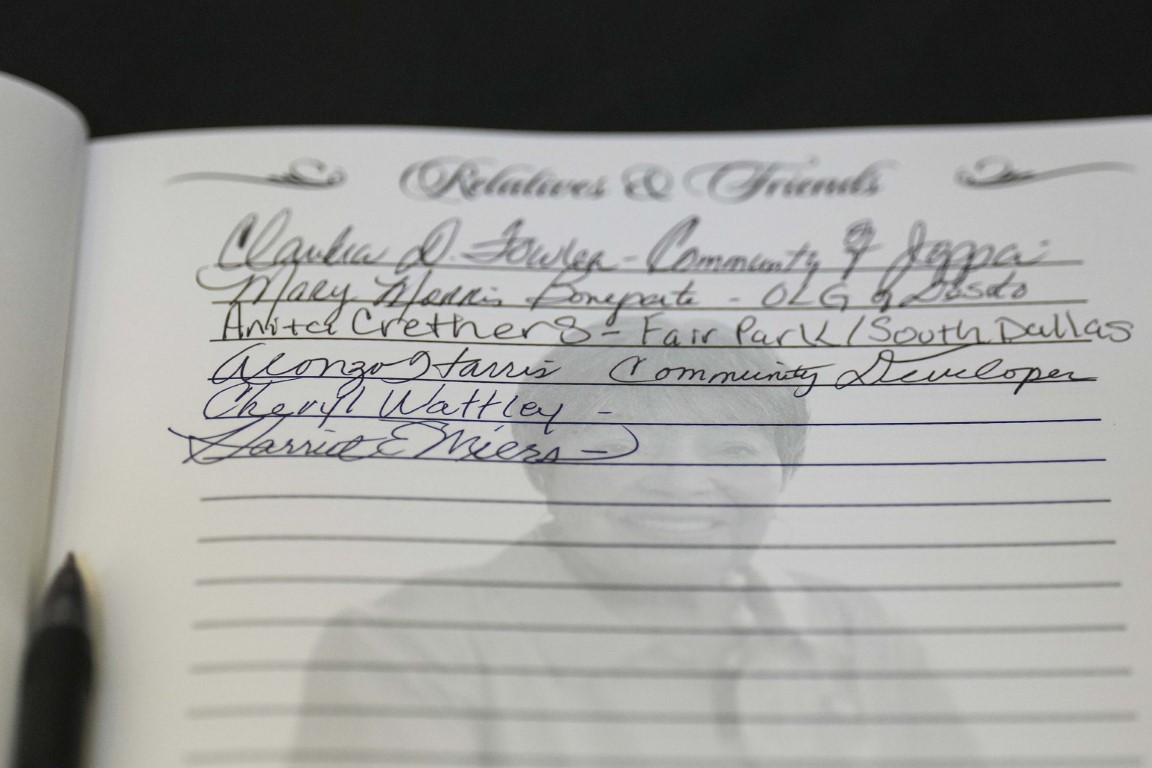 Relatives & Friends
Claudia D. Fowler - Community of Joppa
Mary Morris Boneparte - OLG of Desoto
Anita Crethers - Fair Park / South Dallas
Alonzo Harris Community Developer
Cheryl Wattley -
Harriet E Miers -